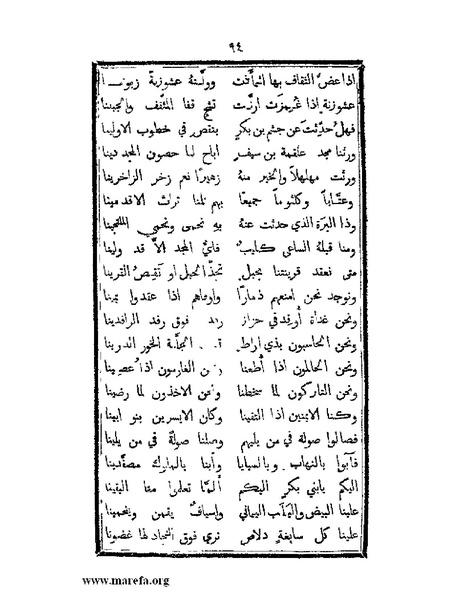 ٩٤
اذا عض الثقاف بها اشمأزت وولته عشوزنة زبونا
عشوزنة اذا غمزت ارنت تشج قفا المثقف والجبينا
فهل حدثت عن جشم بن بكر بنقص في خطوب الاولينا
ورثنا مجد علقمة بن سيف اباح لنا حصون المجد دينا
ورثت مهلهلاً والخير منه زهيرًا نعم ذخر الذاخرينا
وعتابًا وكلثومًا جميعًا بهم نلنا تراث الاقدمينا
وذا البرة الذي حدثت عنه به نحمى ونحمي الملتجينا
ومنا قبله الساعي كليب فاي المجد الا قد ولينا
متى نعقد قرينتنا بحبل تجذ الحبل او تقص القرينا
ونوجد نحن امنعهم ذمارًا واوفاهم اذا عقدوا يمينا
ونحن غداة أوقد في خزاز رفد فوق رفد الرافدينا
ونحن الحابسون بذي اراط الجلة الخور الدرينا
ونحن الحاكمون اذا أطعنا ونحن العازمون اذا عصينا
ونحن التاركون لما سخطنا ونحن الاخذون لما رضينا
وكنا الايمنين اذا التقينا وكان الايسرين بنو ابينا
فصالوا صولة في من يليهم وصلنا صولة في من يلينا
فآبوا بالنهاب وبالسبايا وأبنا بالملوك مصفدينا
اليكم يابني بكر اليكم ألمّا تعلموا منا اليقينا
علينا البيض واليلب اليماني واسياف يقمن وينحنينا
علينا كل سابغة دلاص ترى فوق النجاد لها غضونا
www.marefa.org